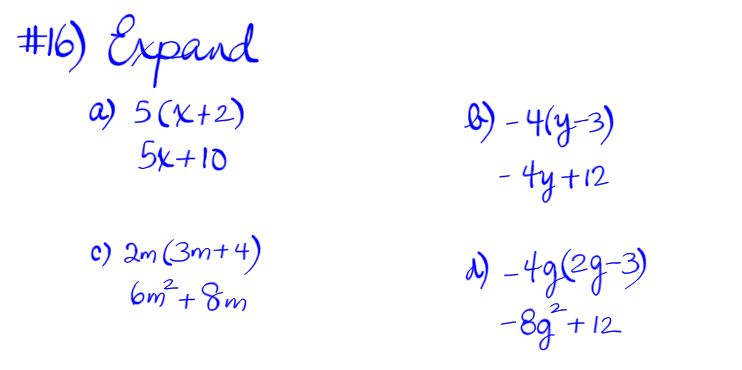 #16) Expand
a) 5(x+2)
5x+10
b) -4(y-3)
-4y+12
c) 2m(3m+4)
6m²+8m
d) -4g(2g-3)
-8g²+12